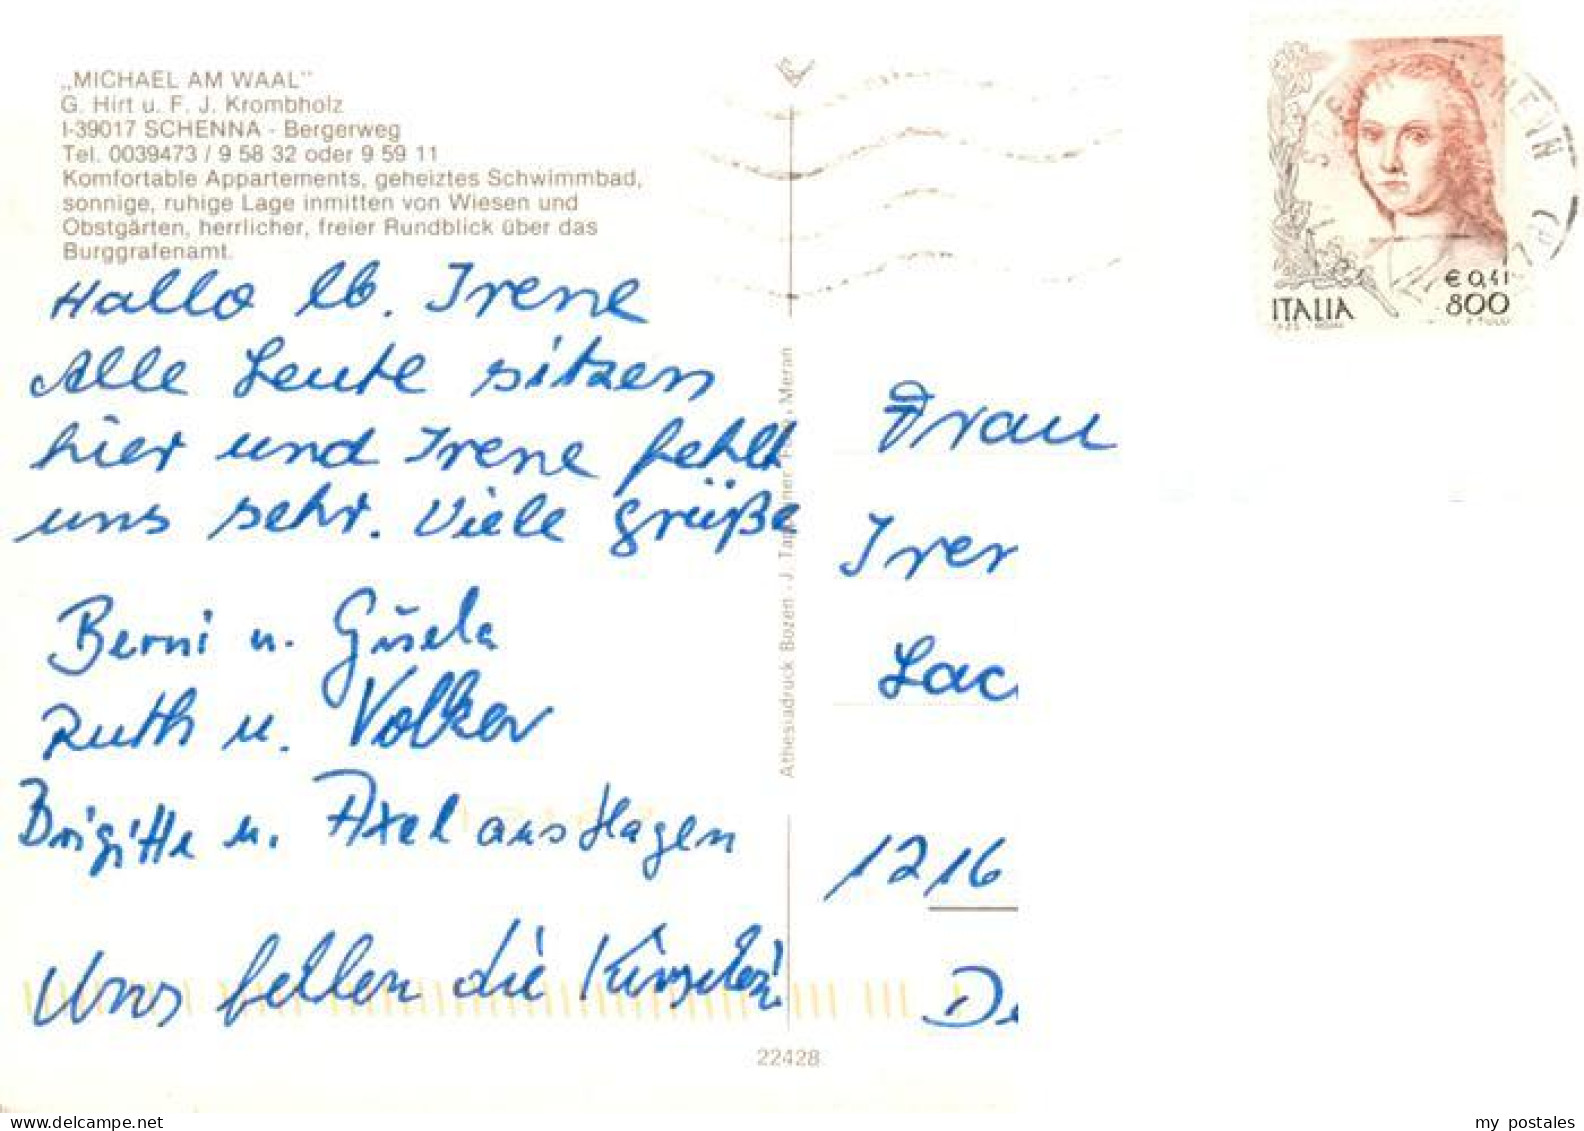 „MICHAEL AM WAAL"
G. Hirt u. F. J. Krombholz
I-39017 SCHENNA - Bergerweg
Tel. 0039473 / 9 58 32 oder 9 59 11
Komfortable Appartements, geheiztes Schwimmbad,
sonnige, ruhige Lage inmitten von Wiesen und
Obstgärten, herrlicher, freier Rundblick über das
Burggrafenamt.
Hallo lb. Irene
Alle Leute sitzen
hier und Irene fehlt
uns sehr. Viele Grüße
Berni u. Gisela
Ruth u. Volker
Brigitte u. Axel aus Hagen
Uns fehlen die
Athesiadruck Bozen - J. Tappeiner, Meran
22428
€ 0,41
ITALIA 800
Frau
Iren
Lac
1216
De
www.delcampe.net
my postales